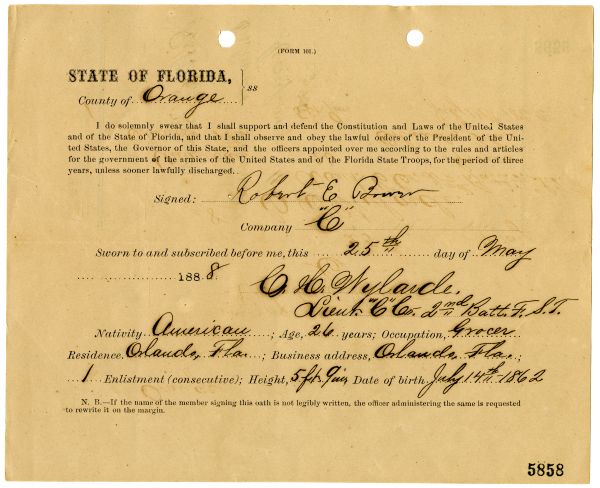 (FORM 101.)
STATE OF FLORIDA, ss
County of Orange
I do solemnly swear that I shall support and defend the Constitution and Laws of the United States
and of the State of Florida, and that I shall observe and obey the lawful orders of the President of the Uni-
ted States, the Governor of this State, and the officers appointed over me according to the rules and articles
for the government of the armies of the United States and of the Florida State Troops, for the period of three
years, unless sooner lawfully discharged.
Signed: Robert E
Company "C"
Sworn to and subscribed before me, this 25th day of May
1888.
C. H. Wylarde.
Lieut. "C" Co. 2nd Batt. F. S. T.
Nativity American; Age, 26 years; Occupation, Grocer
Residence. Orlando, Fla.; Business address, Orlando, Fla.;
1 Enlistment (consecutive); Height, 5 ft. 9 ins Date of birth, July 14th 1862
N. B.—If the name of the member signing this oath is not legibly written, the officer administering the same is requested
to rewrite it on the margin.
5858